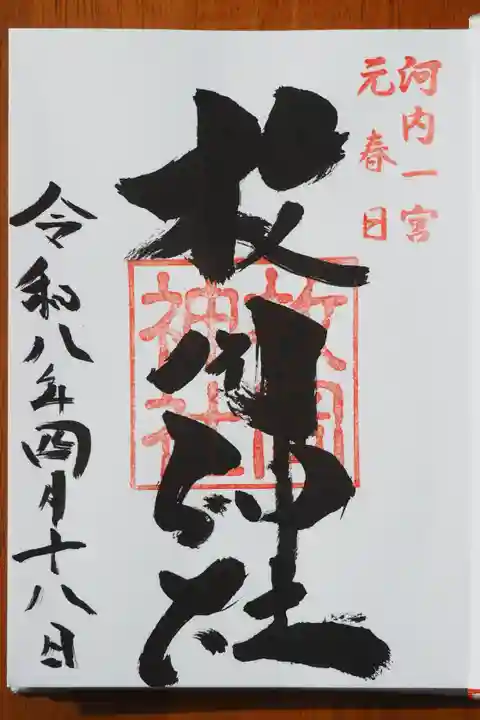 河内一宮
元春日
枚岡神社
枚岡
神社
令和八年四月十八日